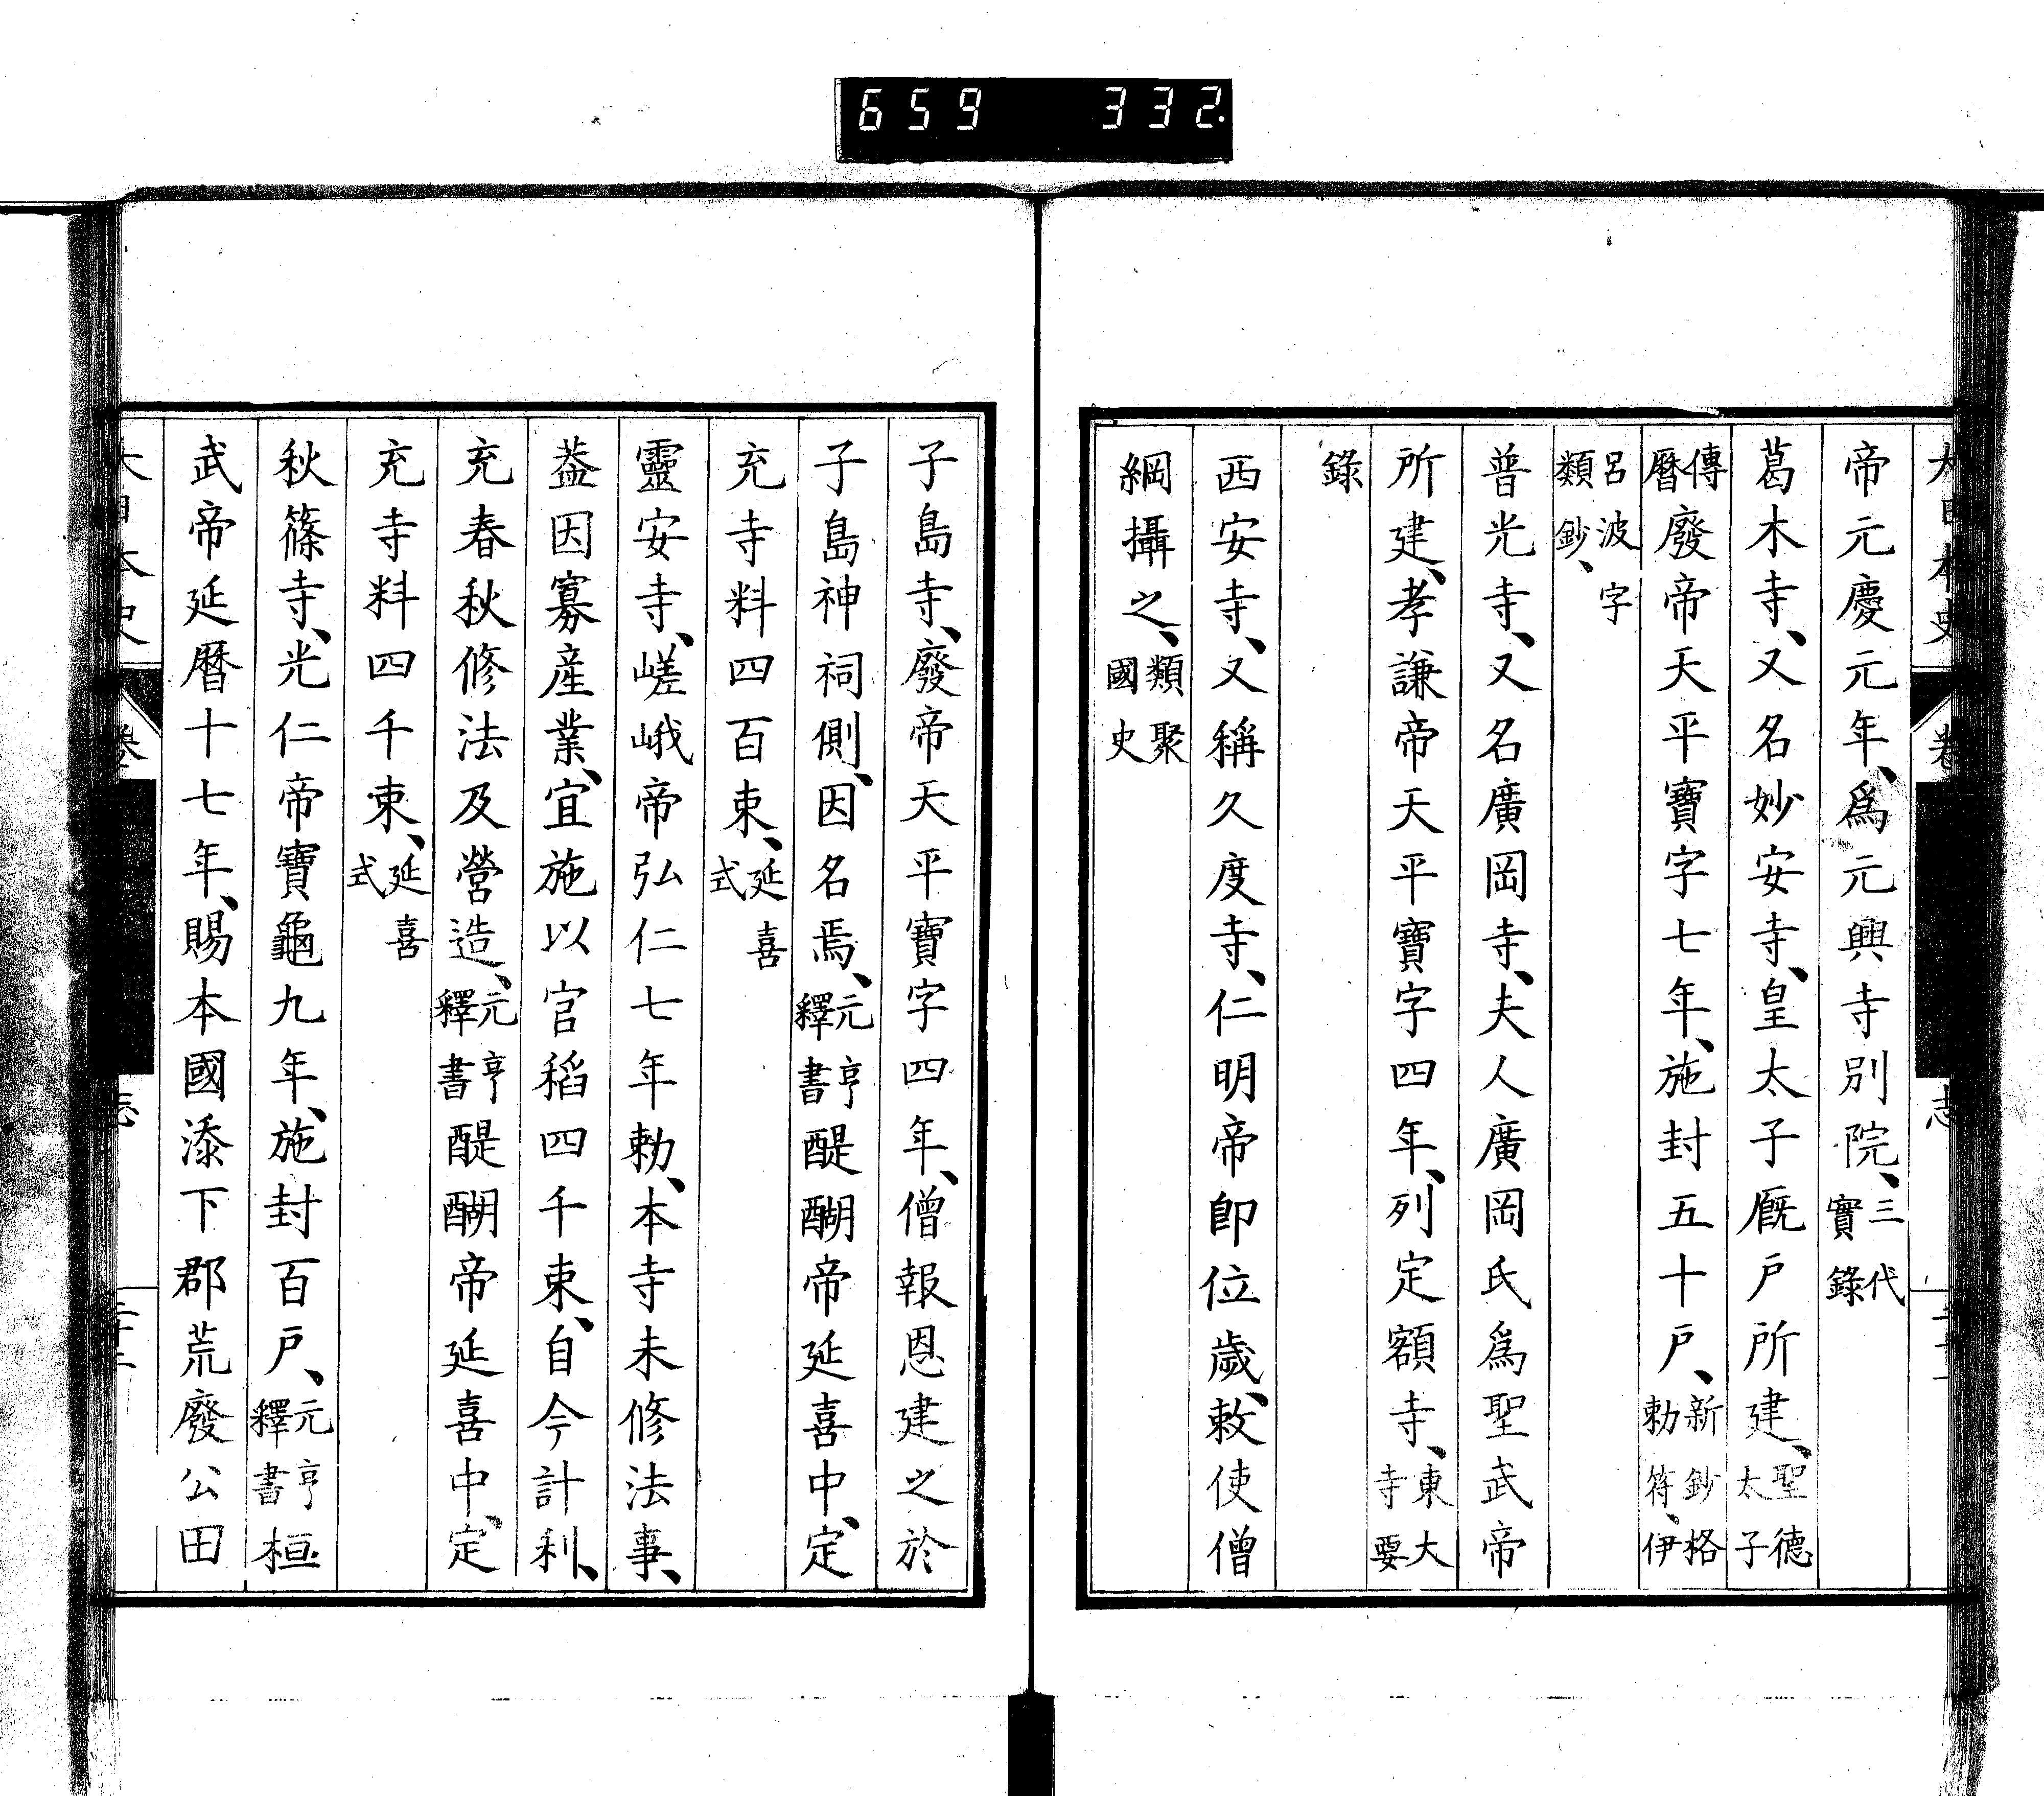 659 332
大日本史 卷 志
帝元慶元年、爲元興寺別院、三代實錄
葛木寺、又名妙安寺、皇太子厩戶所建、聖德太子
傳曆廢帝天平寶字七年、施封五十戶、新鈔格勅符、伊
呂波字類鈔、
普光寺、又名廣岡寺、夫人廣岡氏爲聖武帝
所建、孝謙帝天平寶字四年、列定額寺、東大寺要
錄
西安寺、又稱久度寺、仁明帝卽位歲、敕使僧
綱攝之、類聚國史
子島寺、廢帝天平寶字四年、僧報恩建之於
子島神祠側、因名焉、元亨釋書醍醐帝延喜中、定
充寺料四百束、延喜式
靈安寺、嵯峨帝弘仁七年勅、本寺未修法事、
葢因寡產業、宜施以官稻四千束、自今計利、
充春秋修法及營造、元亨釋書醍醐帝延喜中、定
充寺料四千束、延喜式
秋篠寺、光仁帝寶龜九年、施封百戶、元亨釋書桓
武帝延曆十七年、賜本國添下郡荒廢公田
大日本史 卷 志